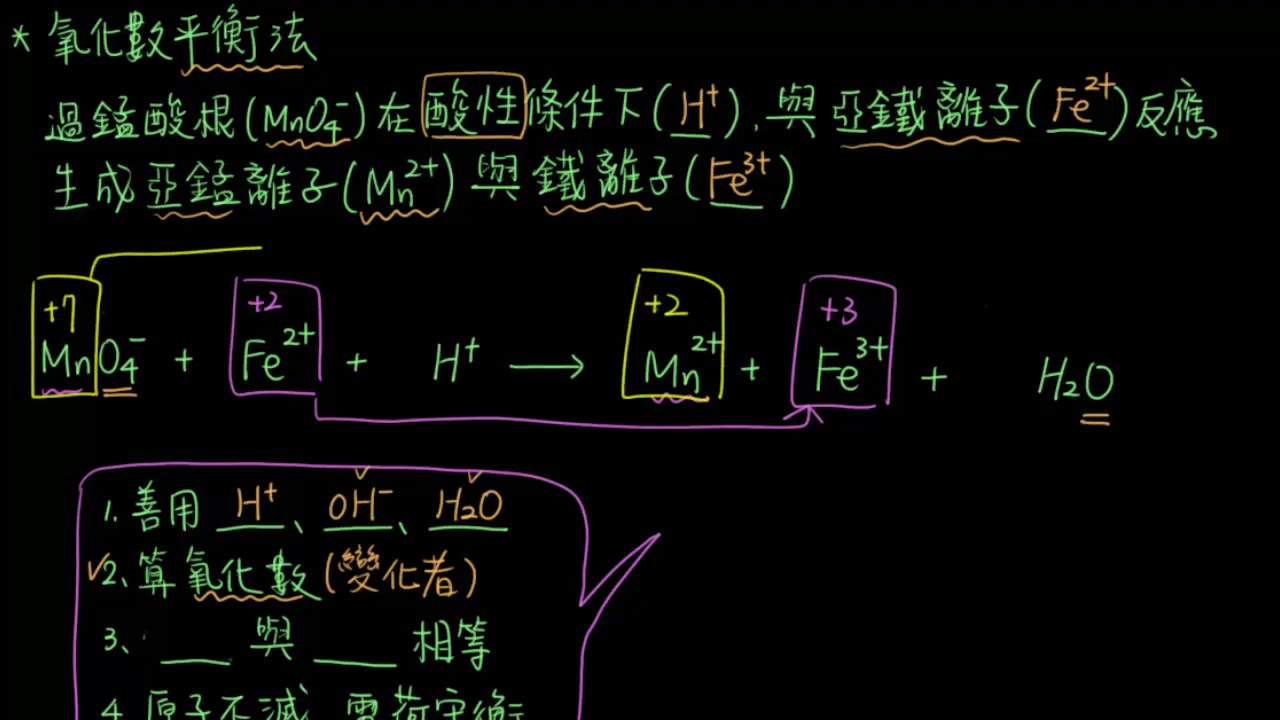 * 氧化數平衡法
過錳酸根(MnO₄⁻)在酸性條件下(H⁺),與亞鐵離子(Fe²⁺)反應
生成亞錳離子(Mn²⁺)與鐵離子(Fe³⁺)
+7 +2 +2 +3
MnO₄⁻ + Fe²⁺ + H⁺ ⟶ Mn²⁺ + Fe³⁺ + H₂O
1. 善用 H⁺、OH⁻、H₂O
✓2、算氧化數(變化者)
3、____ 與 ____ 相等
4. 原子不滅 電荷守衡